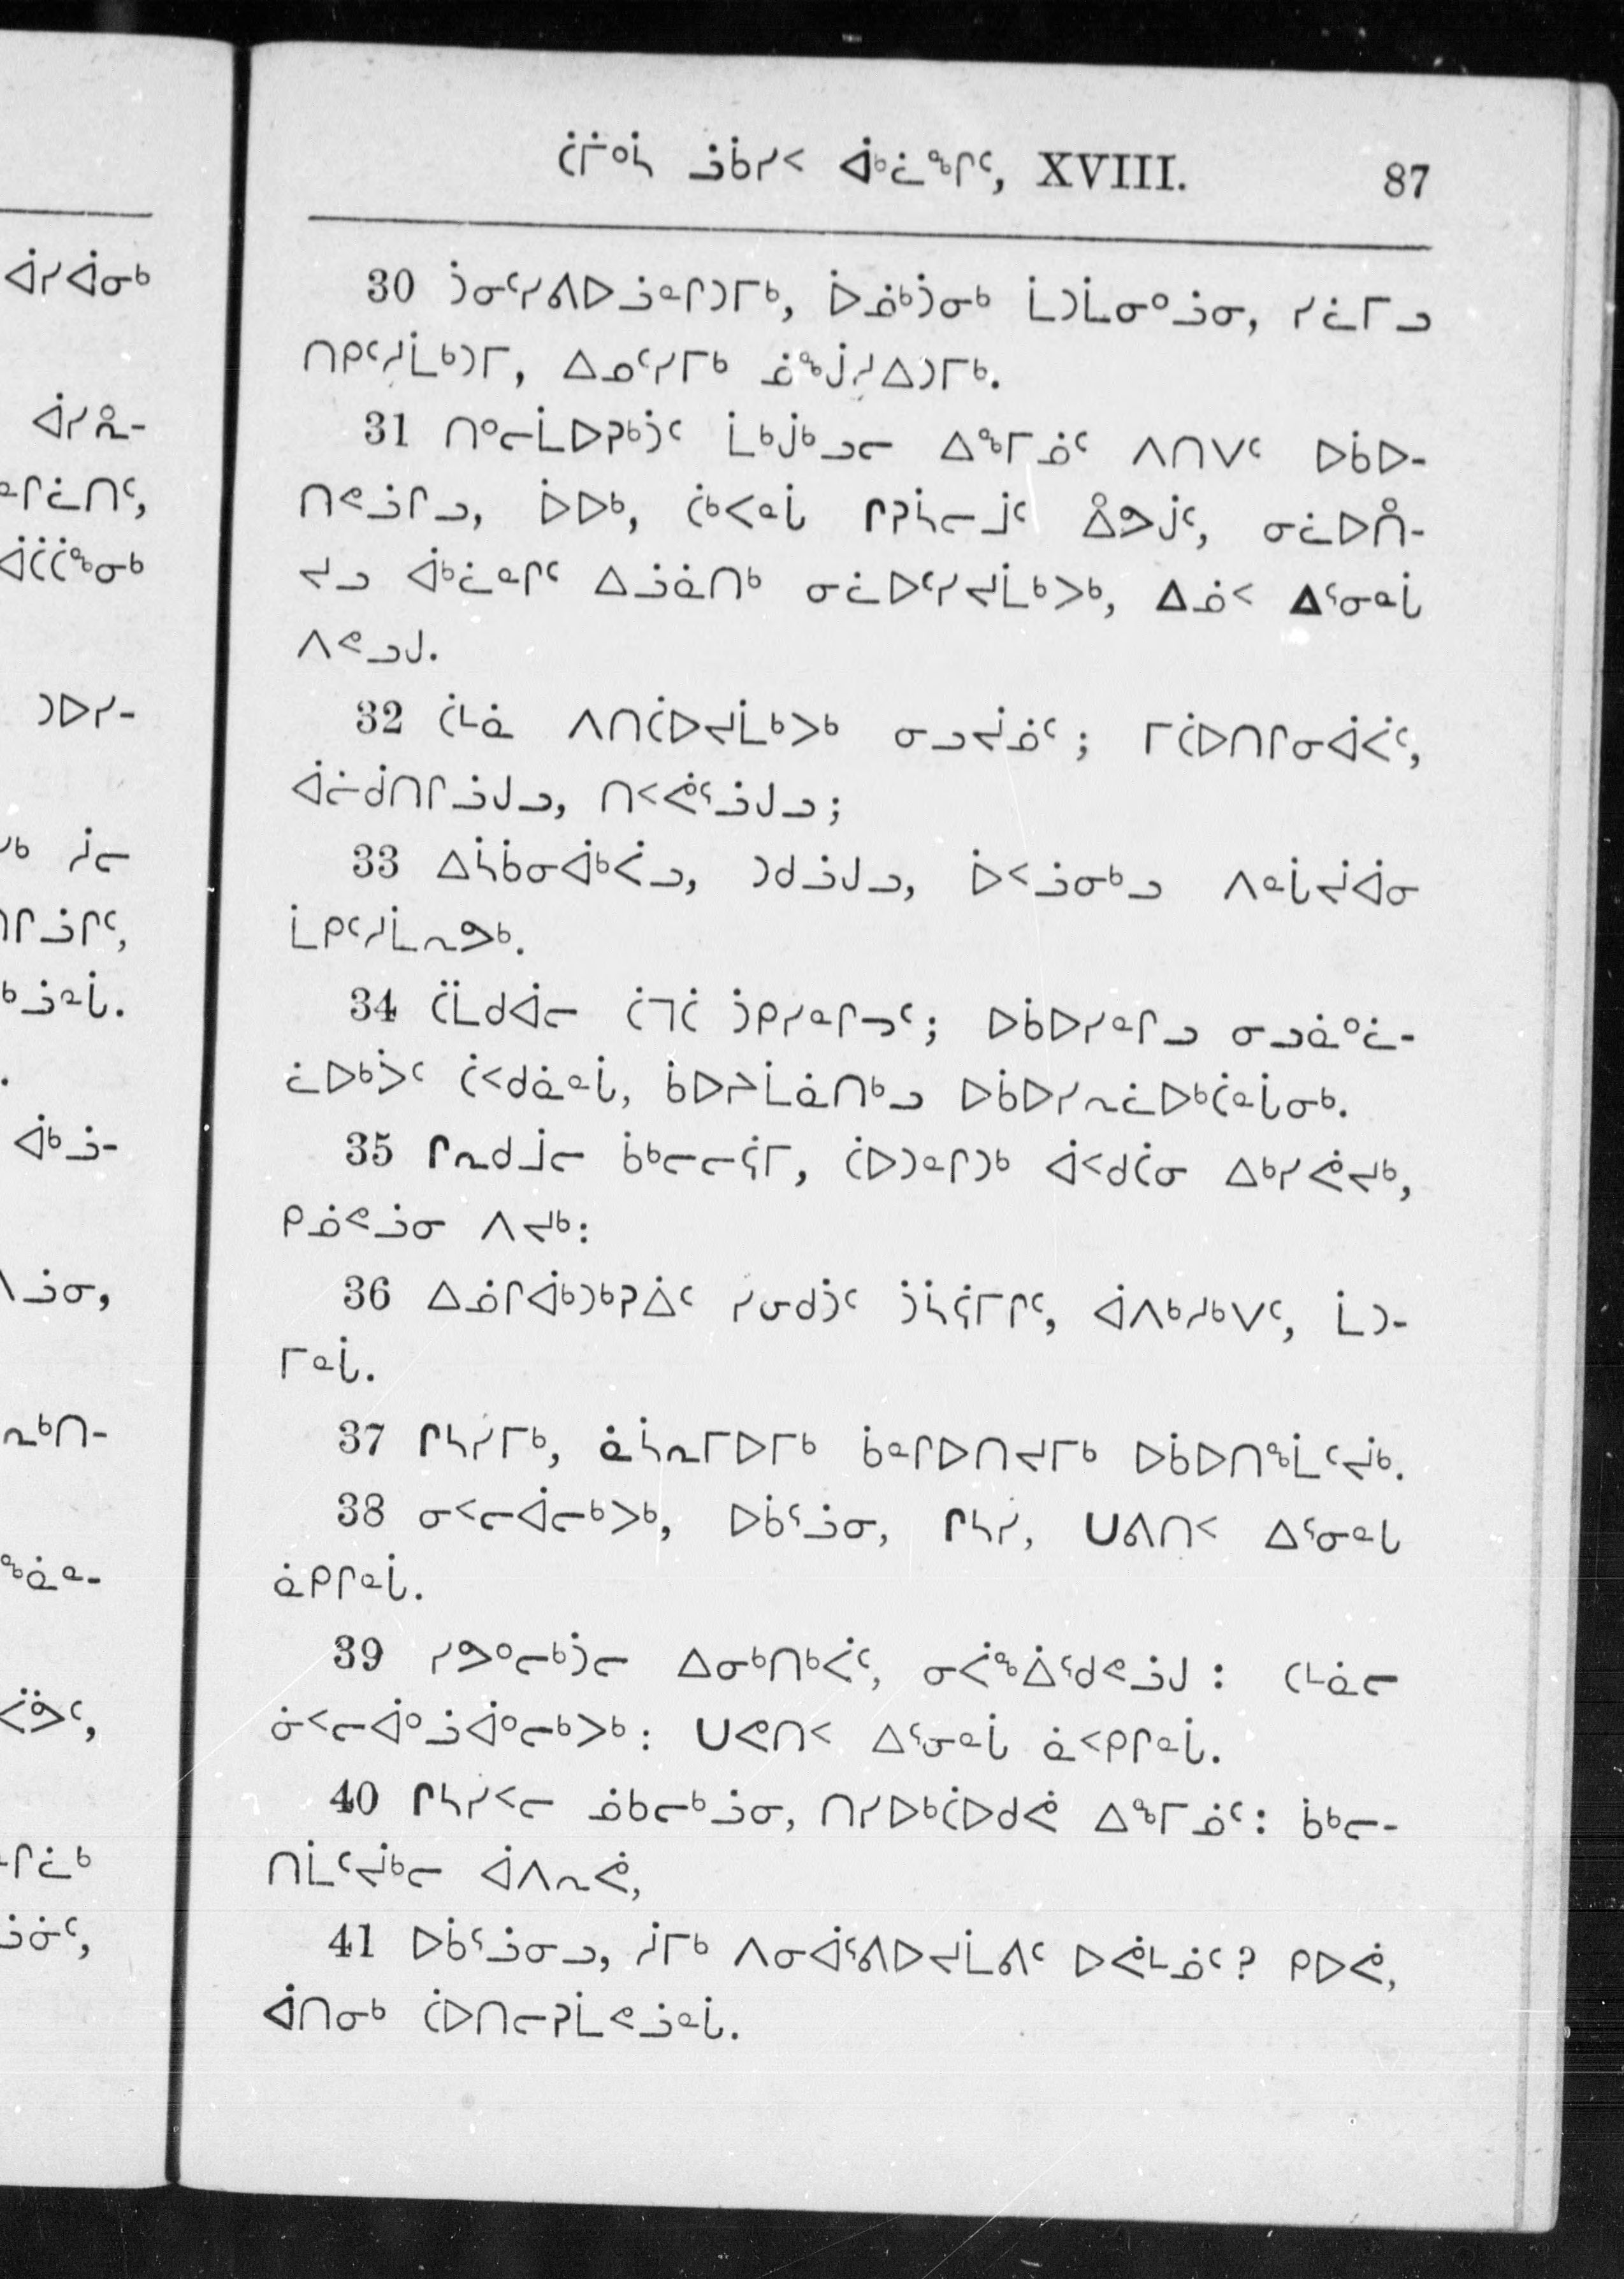 ᑖᒦᓐᓴ ᓘᑳᓯᑉ ᐋᒃᓛᖕᒋᑦ, XVIII. 87
30 ᑑᓂᑦᓯᕕᐅᓘᓇᒋᑐᒥᒃ, ᐆᓅᒃᑑᓂᒃ ᒫᑐᒫᓂᓐᓘᓂ, ᓯᓛᒥᓗ
ᑎᑭᑦᓱᒫᒃᑐᒥ, ᐃᓄᑦᓯᒥᒃ ᓅᖕᒎᓱᐃᑐᒥᒃ.
31 ᑎᓐᓕᒫᐅᕈᒃᑑᑦ ᒫᒃᑰᒃᓗᓕ ᐃᖕᒥᓅᑦ ᐱᑎᐯᑦ ᐅᑳᐅ-
ᑎᕙᓘᒋᓗ, ᐆᐅᒃ, ᑖᒃᐸᓐᒑ ᒋᕈᓵᓕᒧᑦ ᐄᕗᒎᑦ, ᓂᓛᐅᑏ-
ᔪᓗ ᐋᒃᓛᓐᒋᑦ ᐃᓘᓈᑎᒃ ᓂᓛᐅᑦᓯᔪᒫᒃᐳᒃ, ᐃᓅᑉ ᐃᕐᓂᓐᒑ
ᐱᕙᓗᒍ.
32 ᑖᒻᓈ ᐱᑎᑖᐅᔪᒫᒃᐳᒃ ᓂᓗᔫᓅᑦ; ᒥᑖᐅᑎᒋᓂᐋᐹᑦ,
ᐋᓖᑰᑎᒋᓘᒍᓗ, ᑎᑉᐚᕐᓘᒍᓗ;
33 ᐃᓵᑳᓂᐋᒃᐹᓗ, ᑐᑯᓘᒍᓗ, ᐆᑉᓘᓂᒃᓗ ᐱᓐᒑᔫᐋᓂ
ᒫᑭᑦᓱᒫᕆᕗᒃ.
34 ᑖᒫᑯᐋᓕ ᑖᒣᑖ ᑑᑭᓯᓇᒋᓓᑦ; ᐅᑳᐅᓯᓐᒋᓗ ᓂᓗᓈᓐᓛ-
ᓛᐅᒃᐴᑦ ᑖᑉᑯᓈᓐᒑ, ᑳᐅᔨᒫᓈᑎᒃᓗ ᐅᑳᐅᓯᕆᓛᐅᒃᑖᓐᒑᓂᒃ.
35 ᒋᕆᑯᒨᓕ ᑳᒃᓕᓕᕌᒥ, ᑖᐅᑐᓐᒋᑐᒃ ᐋᑉᑯᑖᓂ ᐃᒃᓯᕚᔪᒃ,
ᑭᓅᕙᓘᓂ ᐱᔪᒃ:
36 ᐃᓅᒋᐋᒃᑐᒃᕈᐄᑦ ᓯᓂᑯᑑᑦ ᑑᓵᕌᒥᒋᑦ, ᐋᐱᒃᓱᒃᐯᑦ, ᒫᑐ-
ᒥᓐᒑ.
37 ᒋᓴᓯᒥᒃ, ᓈᓵᕆᒥᐅᒥᒃ ᑳᓐᒋᐅᑎᔪᒥᒃ ᐅᑳᐅᑎᖕᒫᑦᔫᒃ.
38 ᓂᑉᓕᐋᓕᒃᐳᒃ, ᐅᑳᕐᓘᓂ, ᒋᓴᓯ, ᑌᕕᑎᑉ ᐃᕐᓂᓐᒐ
ᓈᑭᒋᓐᒑ.
39 ᓯᕗᓐᓕᒃᑑᓕ ᐃᓂᒃᑎᒃᐹᑦ, ᓂᐹᖕᐄᕐᑯᕙᓘᒍ: ᑕᒻᓈᓕ
ᓃᑉᓕᐋᓐᓘᐋᓐᓕᒃᐳᒃ: ᑌᕙᑎᑉ ᐃᕐᓂᓐᒑ ᓈᑉᑭᒋᓐᒑ.
40 ᒋᓴᓯᑉᓕ ᓅᑲᓕᒃᓘᓂ, ᑎᓯᐅᒃᑖᐅᑯᕚ ᐃᖕᒥᓅᑦ: ᑳᒃᓕ-
ᑎᒫᑦᔫᒃᓕ ᐋᐱᕆᕚ,
41 ᐅᑳᕐᓘᓂᓗ, ᓲᒥᒃ ᐱᓂᐋᕐᕕᐅᔪᒫᕕᑦ ᐅᕚᒻᓅᑦ? ᑭᐅᕚ,
ᐋᑎᓂᒃ ᑖᐅᑎᓕᕈᒫᕙᓘᓐᒑ.